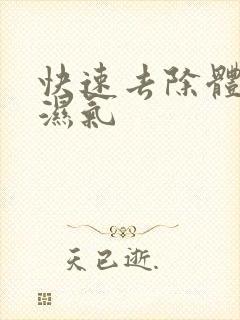 快速去除體
濕氣
天已逝.